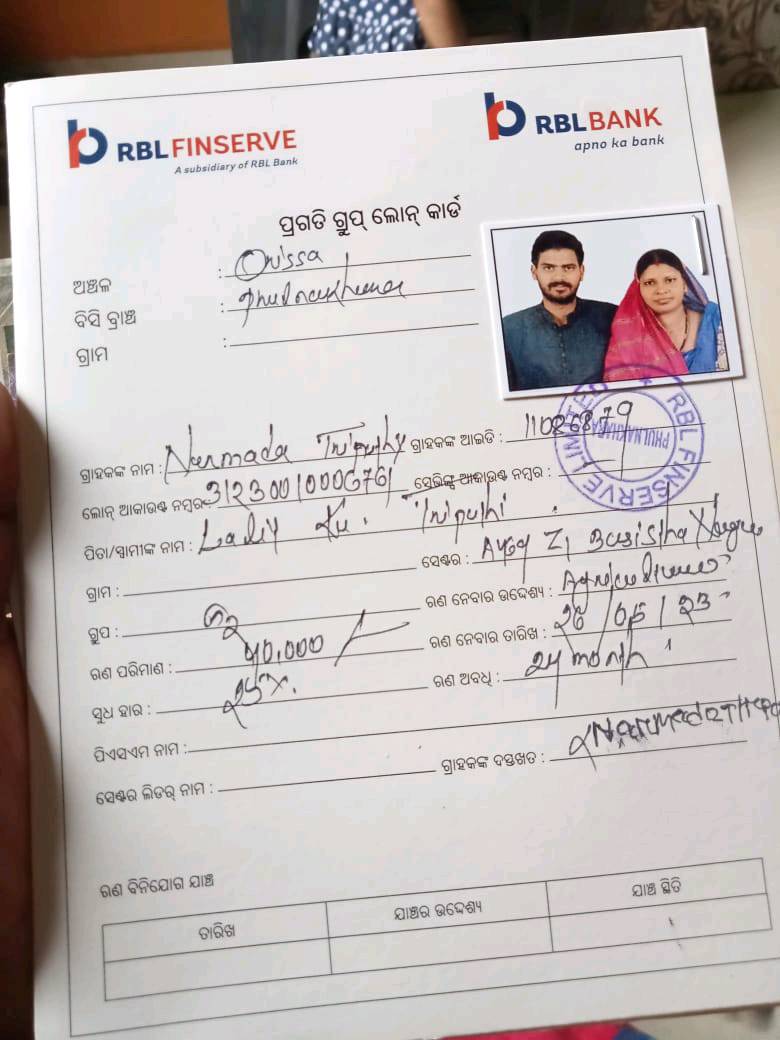 RBL FINSERVE
A subsidiary of RBL Bank
RBL BANK
apno ka bank
ପ୍ରଗତି ଗ୍ରୁପ୍ ଲୋନ୍ କାର୍ଡ
ଅଞ୍ଚଳ : Orissa
ବିସି ବ୍ରାଞ୍ଚ : Phulnakhara
ଗ୍ରାମ :
ଗ୍ରାହକଙ୍କ ନାମ : Narmada Tripathy ଗ୍ରାହକଙ୍କ ଆଇଡି : 11026879
ଲୋନ୍ ଆକାଉଣ୍ଟ ନମ୍ବର: ସେଭିଙ୍ଗ୍ସ ଆକାଉଣ୍ଟ ନମ୍ବର :
ପିତା/ସ୍ୱାମୀଙ୍କ ନାମ : Ku. Tripathi
ଗ୍ରାମ : ସେଣ୍ଟର :
ଗ୍ରୁପ : ଋଣ ନେବାର ଉଦ୍ଦେଶ୍ୟ :
ଋଣ ପରିମାଣ : 40,000/- ଋଣ ନେବାର ତାରିଖ : 26/05/23
ସୁଧ ହାର : 25%. ଋଣ ଅବଧି : 24 month
ପିଏସଏମ ନାମ :
ସେଣ୍ଟର ଲିଡର୍ ନାମ : ଗ୍ରାହକଙ୍କ ଦସ୍ତଖତ :
ଋଣ ବିନିଯୋଗ ଯାଞ୍ଚ
ତାରିଖ ଯାଞ୍ଚର ଉଦ୍ଦେଶ୍ୟ ଯାଞ୍ଚ ସ୍ଥିତି
RBL FINSERVE LIMITED
PHULNAKHARA